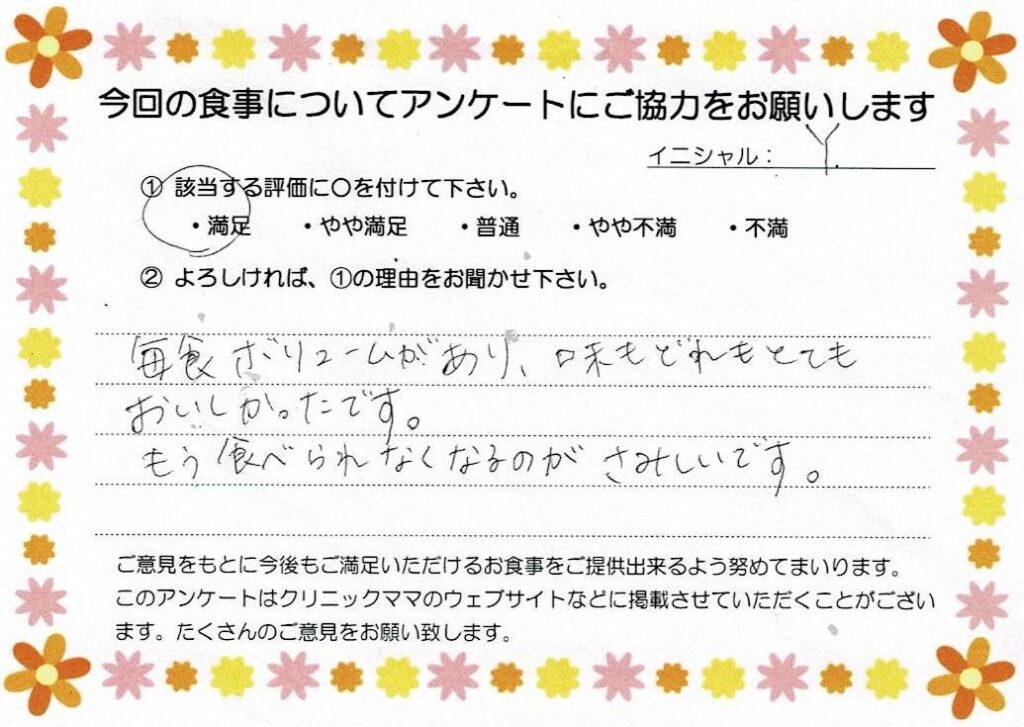 今回の食事についてアンケートにご協力をお願いします
イニシャル： Y.
① 該当する評価に〇を付けて下さい。
・満足 ・やや満足 ・普通 ・やや不満 ・不満
② よろしければ、①の理由をお聞かせ下さい。
毎食ボリュームがあり、味もどれもとても
おいしかったです。
もう食べられなくなるのがさみしいです。
ご意見をもとに今後もご満足いただけるお食事をご提供出来るよう努めてまいります。
このアンケートはクリニックママのウェブサイトなどに掲載させていただくことがござい
ます。たくさんのご意見をお願い致します。